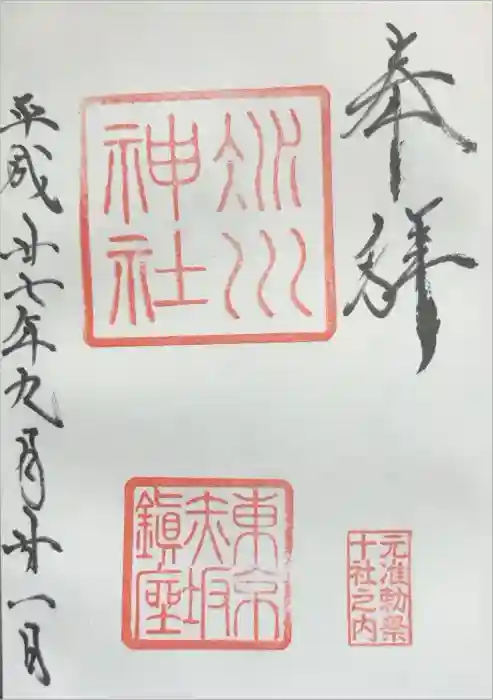 奉拝
氷川
神社
東京
赤坂
鎮座
元准勅祭
十社之内
平成廿七年九月廿一日